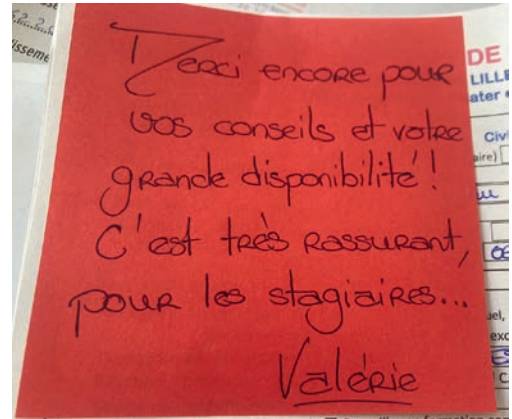 Merci encore pour
vos conseils et votre
grande disponibilité !
C'est très rassurant,
pour les stagiaires...
Valérie
DE
LILLE
Civi